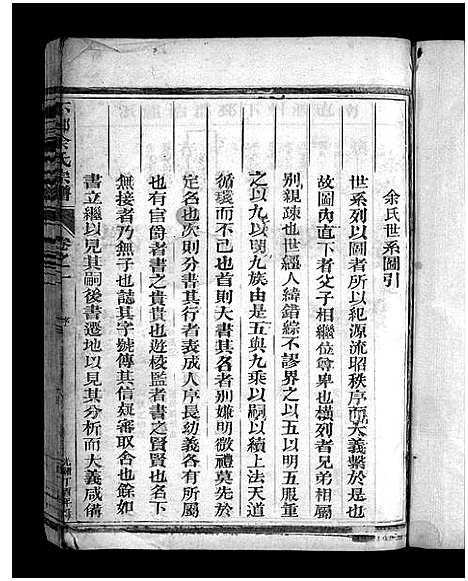 余氏世系圖引
世系列以圖者所以紀源流昭秩序而大義繫於是也
故圖內直下者父子相繼位尊卑也橫列者兄弟相屬
別親疎也世經人緯錯綜不謬界之以五以明五服重
之以九以明九族由是五與九乘以嗣以續上法天道
循環而不已也首則大書其名者別嫌明微禮莫先於
定名也次則分書其行者表成人序長幼義各有所屬
也有官爵者書之貴貴也遊校監者書之賢賢也名下
無接者乃無子也誌其字號傳其信短審取舍也餘如
書立繼以見其嗣後書遷地以見其分析而大義咸備
余氏宗譜
卷之一
序